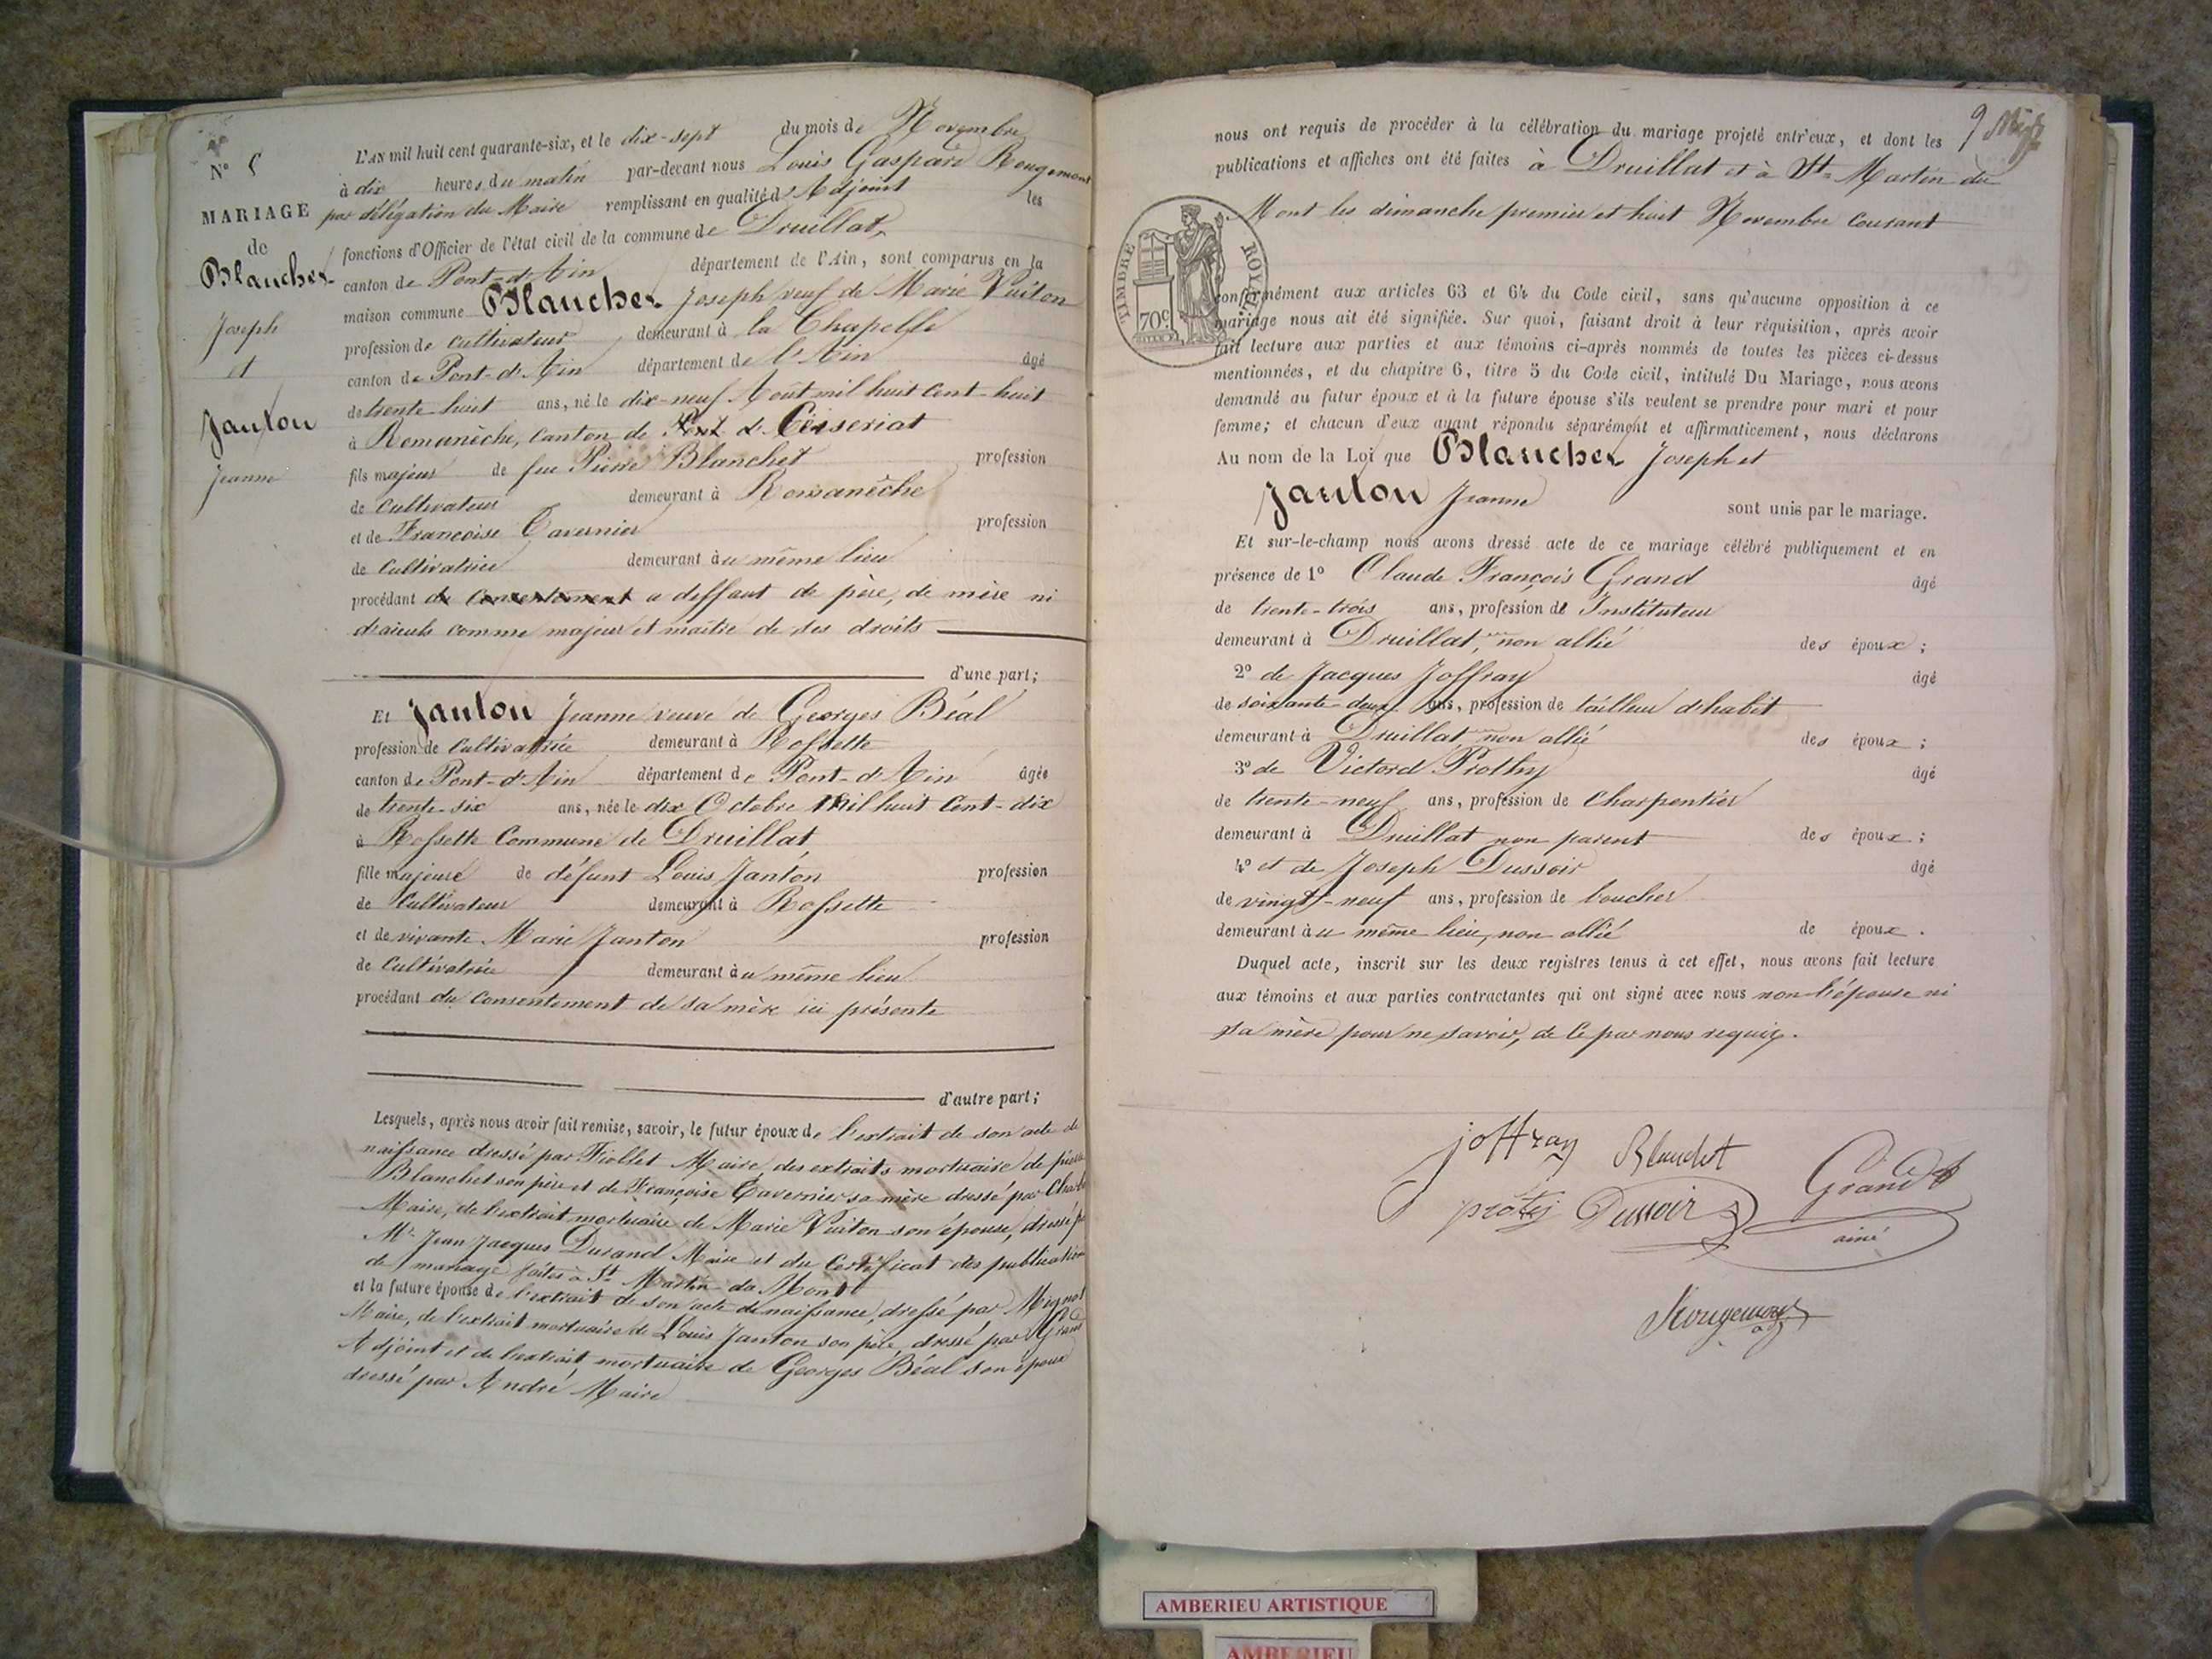 N° 5
MARIAGE
de
Blanchet
Joseph
et
Janton
Jeanne
L'AN mil huit cent quarante-six, et le dix-sept du mois de Novembre
à dix heures du matin par-devant nous Louis Gaspard Rougemont
par délégation du Maire remplissant en qualité d'Adjoint les
fonctions d'Officier de l'état civil de la commune de Druillat,
canton de Pont-d'Ain département de l'Ain, sont comparus en la
maison commune Blanchet Joseph veuf de Marie Vuiton
profession de cultivateur demeurant à la Chapelle
canton de Pont-d'Ain département de l'Ain âgé
de trente-huit ans, né le dix-neuf Août mil huit cent-huit
à Romanèche, canton de Ceiseriat
fils majeur de feu Pierre Blanchet profession
de cultivateur demeurant à Romanèche
et de Françoise Tavernier profession
de Cultivatrice demeurant au même lieu
procédant du consentement a deffaut de père, de mère ni
d'aïeuls comme majeur et maître de ses droits
d'une part;
Et Janton Jeanne veuve de Georges Béal
profession de Cultivatrice demeurant à Rossette
canton de Pont-d'Ain département de Pont-d'Ain âgée
de trente-six ans, née le dix Octobre mil huit cent-dix
à Rossette Commune de Druillat
fille majeure de défunt Louis Janton profession
de Cultivateur demeurant à Rossette
et de vivante Marie Janton profession
de Cultivatrice demeurant au même lieu
procédant du consentement de sa mère ici présente
d'autre part;
Lesquels, après nous avoir fait remise, savoir, le futur époux de l'extrait de son acte de
naissance dressé par Fiollet Maire, des extraits mortuaire de pierre
Blanchet son père et de Françoise Tavernier sa mère dressé par
Maire, de l'extrait mortuaire de Marie Vuiton son épouse, dressé par
Mr Jean Jacques Durand Maire et du Certificat des publications
de mariage faites à St Martin du Mont
et la future épouse de l'extrait de son acte de naissance, dressé par Mignot
Maire, de l'extrait mortuaire de Louis Janton son père, dressé par Grand
Adjoint et de l'extrait mortuaire de Georges Béal son époux
dressé par André Maire
9
nous ont requis de procéder à la célébration du mariage projeté entr'eux, et dont les
publications et affiches ont été faites à Druillat et à St Martin du
Mont les dimanche premier et huit Novembre courant
TIMBRE ROYAL
70c
conformément aux articles 63 et 64 du Code civil, sans qu'aucune opposition à ce
mariage nous ait été signifiée. Sur quoi, faisant droit à leur réquisition, après avoir
fait lecture aux parties et aux témoins ci-après nommés de toutes les pièces ci-dessus
mentionnées, et du chapitre 6, titre 5 du Code civil, intitulé Du Mariage, nous avons
demandé au futur époux et à la future épouse s'ils veulent se prendre pour mari et pour
femme; et chacun d'eux ayant répondu séparément et affirmativement, nous déclarons
Au nom de la Loi que Blanchet Joseph et
Janton Jeanne sont unis par le mariage.
Et sur-le-champ nous avons dressé acte de ce mariage célébré publiquement et en
présence de 1° Claude François Grand âgé
de trente-trois ans, profession de Instituteur
demeurant à Druillat, non allié des époux;
2° de Jacques Joffray âgé
de soixante deux ans, profession de tailleur d'habit
demeurant à Druillat non allié des époux;
3° de Victord Prothy âgé
de trente-neuf ans, profession de Charpentier
demeurant à Druillat non parent des époux;
4° et de Joseph Dussoir âgé
de vingt-neuf ans, profession de boucher
demeurant au même lieu, non allié de époux.
Duquel acte, inscrit sur les deux registres tenus à cet effet, nous avons fait lecture
aux témoins et aux parties contractantes qui ont signé avec nous non l'épouse ni
sa mère pour ne savoir, de ce par nous requis.
joffray Blanchet Grand
protij Dussoir ainé
Rougemont
AMBERIEU ARTISTIQUE
AMBERIEU